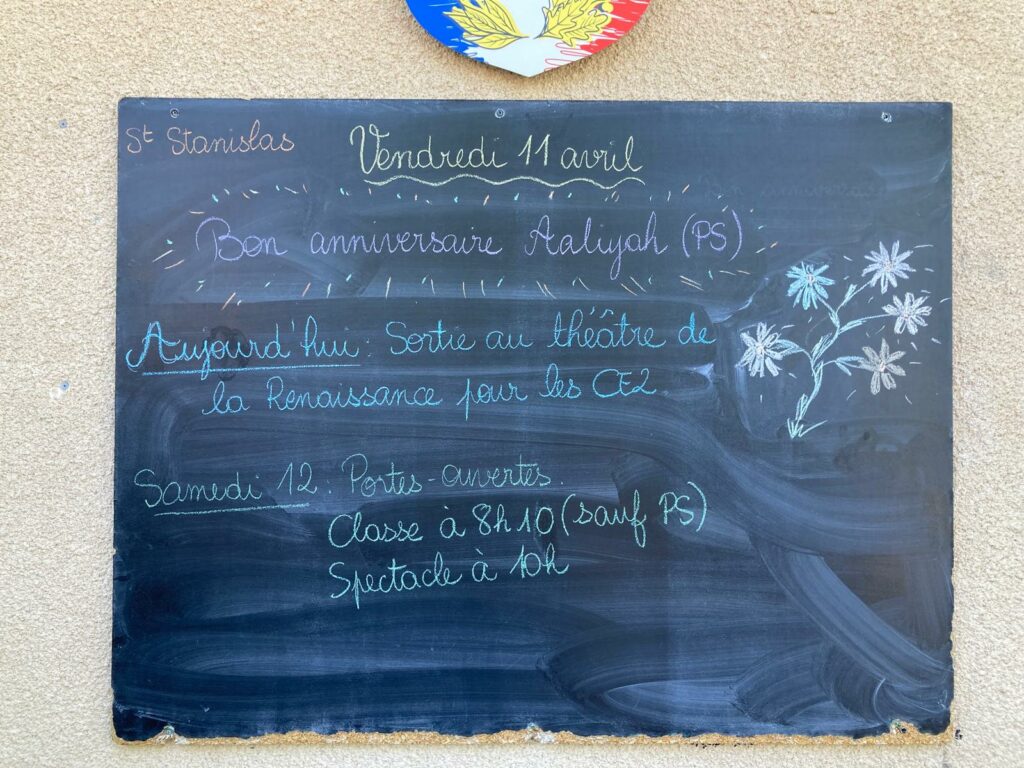 St Stanislas
Vendredi 11 avril
Bon anniversaire Aaliyah (PS)
Aujourd'hui : Sortie au théâtre de
la Renaissance pour les CE2.
Samedi 12 : Portes-ouvertes.
Classe à 8h10 (sauf PS)
Spectacle à 10h